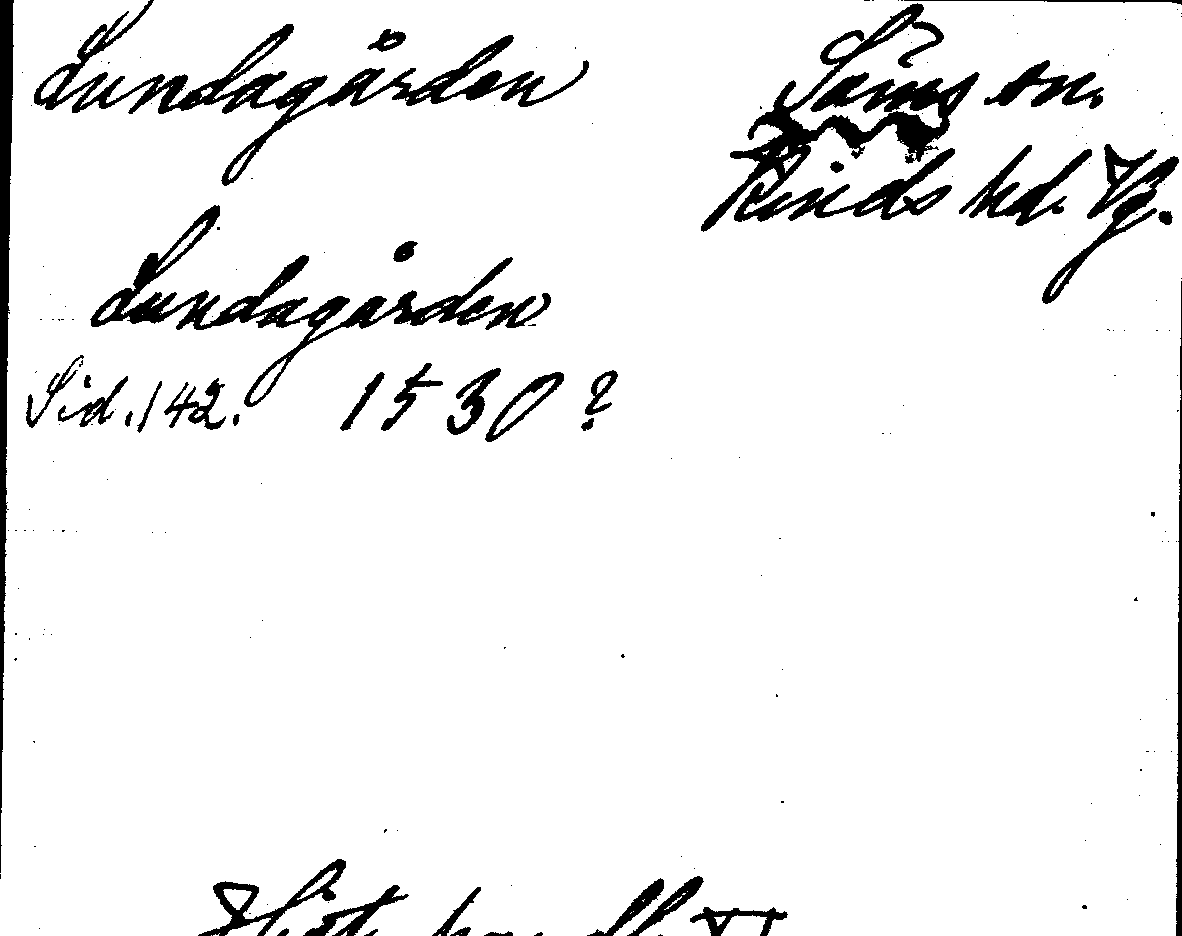 Lundagården
Säms sn.
Kinds hd. Vg.
Lundagården
Sid. 142. 1530?
Hist. handl.